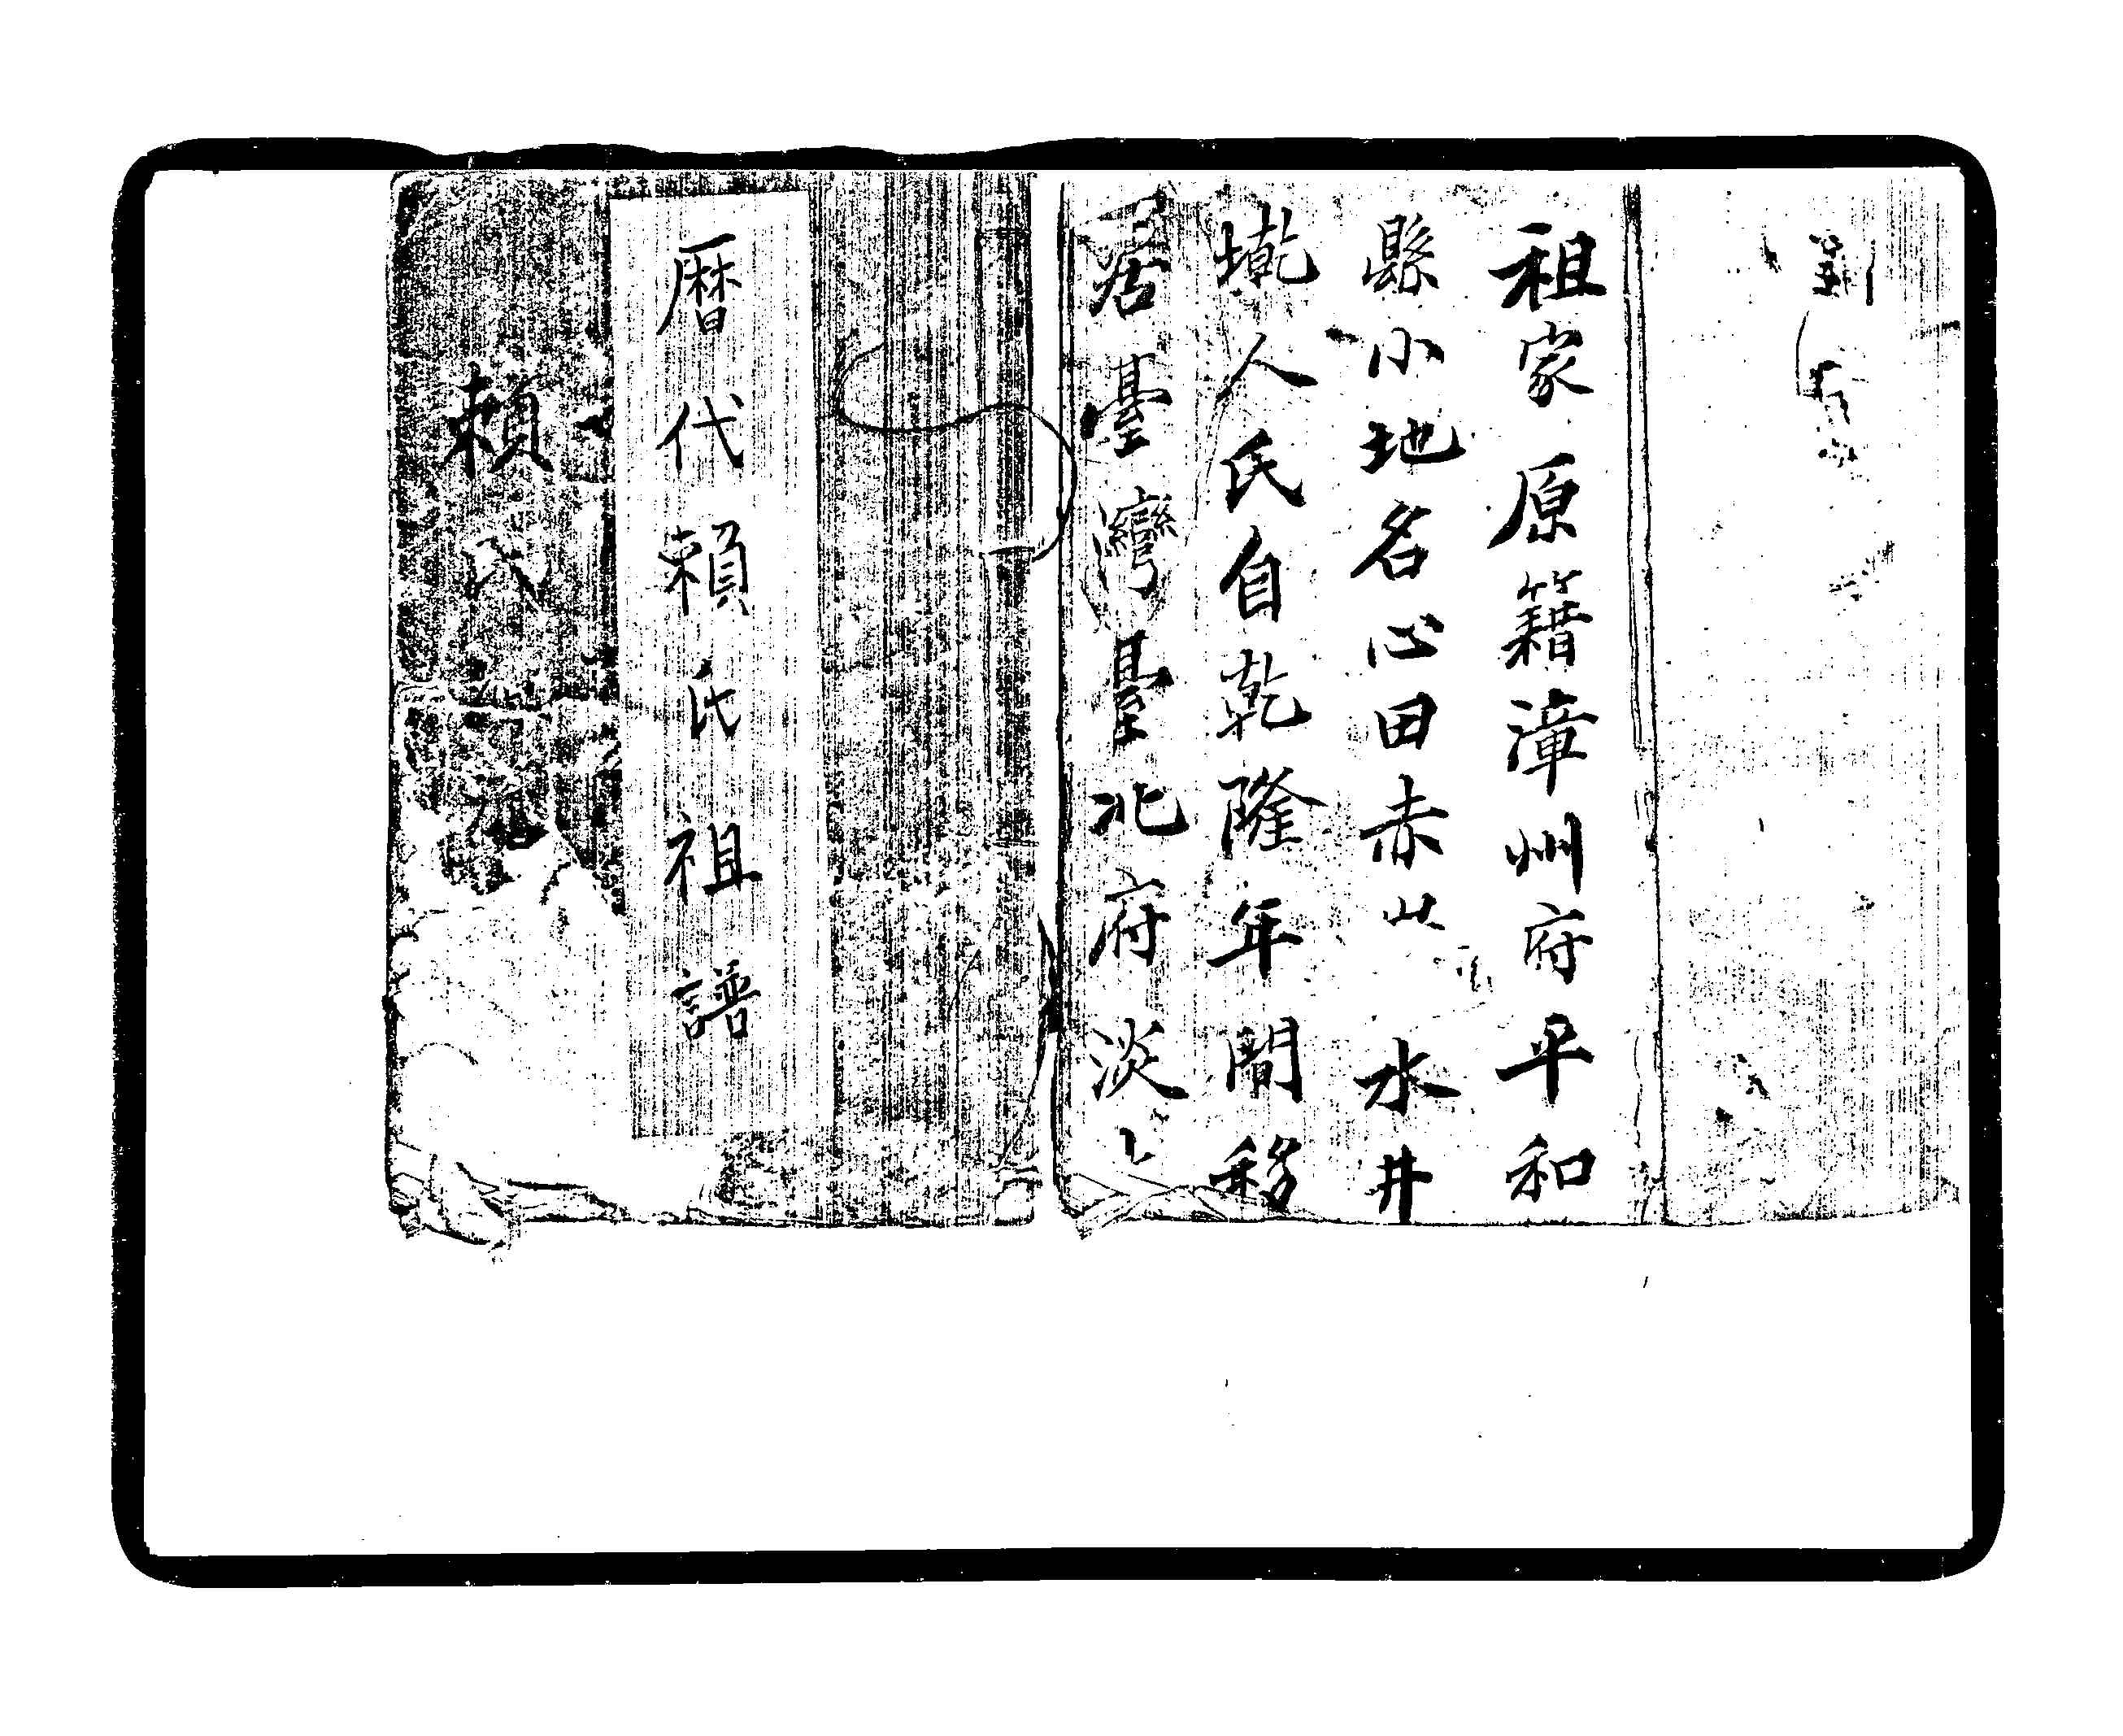 祖家原籍漳州府平和
縣小地名心田赤 水井
墘人氏自乾隆年間移
居臺灣臺北府淡
曆代賴氏祖譜
賴氏